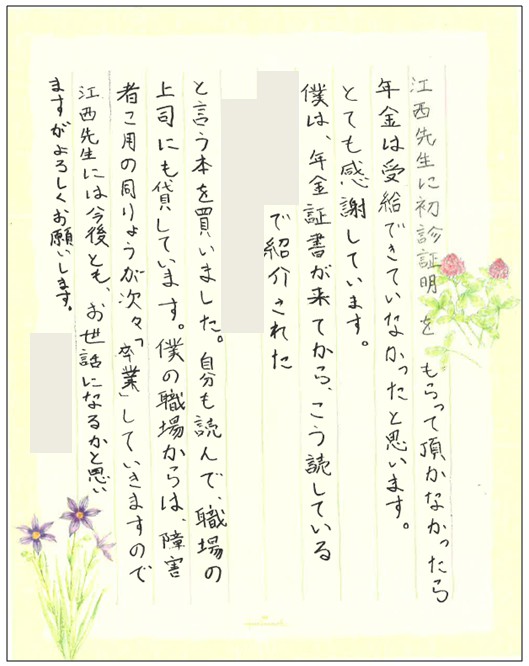 江西先生に初診証明をもらって頂かなかったら
年金は受給できていなかったと思います。
とても感謝しています。
僕は、年金証書が来てから、こう読している
で紹介された
と言う本を買いました。自分も読んで、職場の
上司にも貸しています。僕の職場からは、障害
者こ用の同りょうが次々「卒業」していきますので
江西先生には今後とも、お世話になるかと思い
ますがよろしくお願いします。